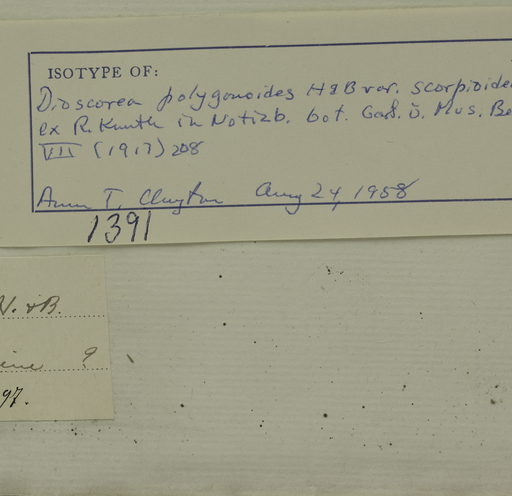 ISOTYPE OF:
Dioscorea polygonoides H & B var. scorpioide
ex R. Knuth in Notizb. bot. Gart. u. Mus. Be
VII (1917) 208
Ann T. Clayton Aug 24, 1958
1391
W. & B.
♀
97.